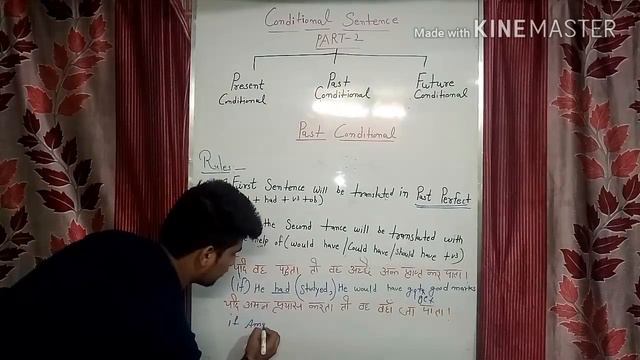 Made with KINEMASTER
Conditional Sentence
PART-2
Present Conditional
Past Conditional
Future Conditional
Past Conditional
Rules:-
First Sentence will be translated in Past Perfect
+ had + v3 + ob)
the Second tance will be translated with
help of (would have / Could have / should have + v3)
यदि वह पढ़ता तो वह अच्छे अंक प्राप्त कर पाता।
(if) He had (studied,) He would have good marks
get
यदि अमन प्रयास करता तो वह वहाँ जा पाता।
if